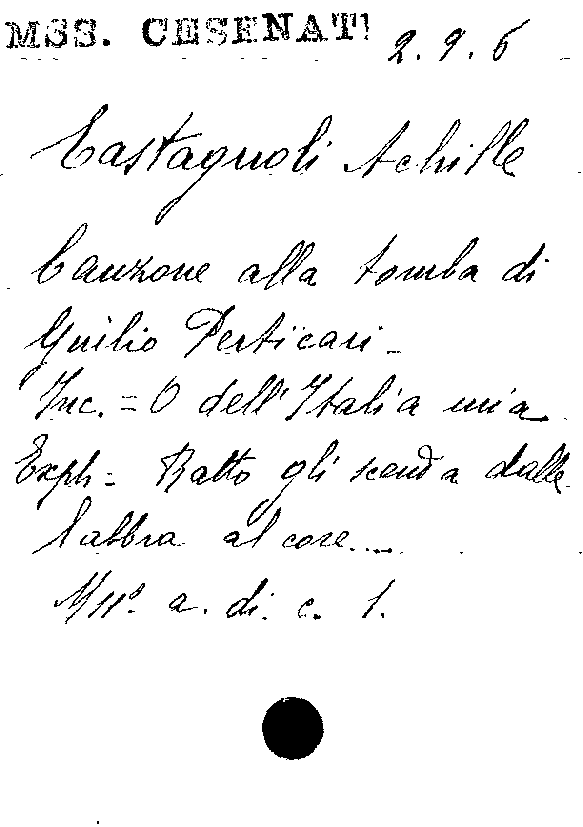 MSS. CESENATI 2.9.6
Castagnoli Achille
Canzone alla tomba di
Giulio Perticari -
Inc. = O dell'Italia mia
Exph = Ratto gli scenda dalle
labbra al core....
Mss. a. di. c. 1.